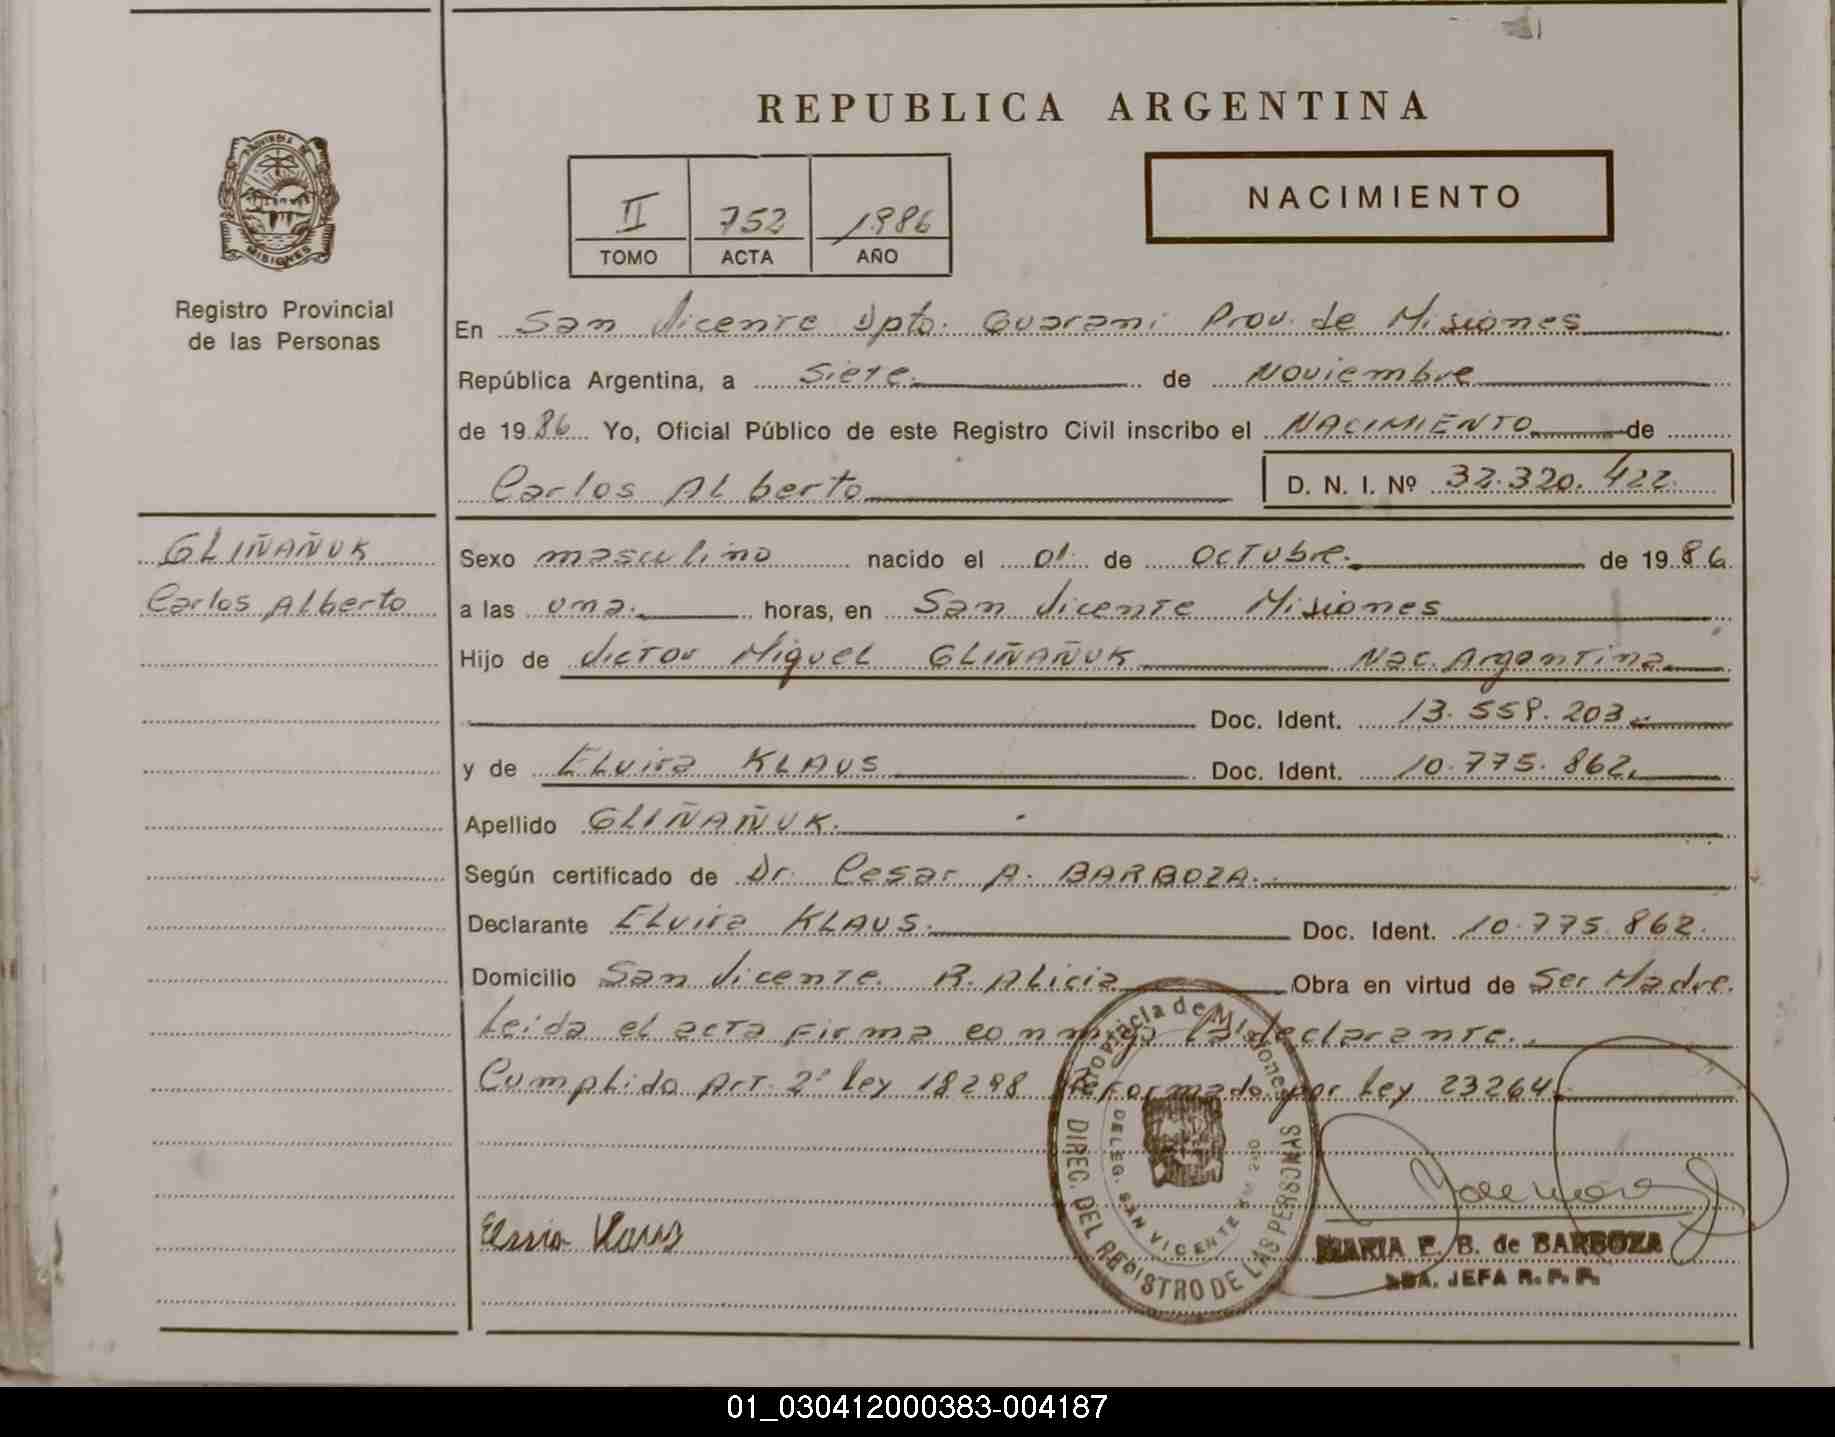 REPUBLICA ARGENTINA
NACIMIENTO
II 752 1986
TOMO ACTA AÑO
PROVINCIA DE
MISIONES
Registro Provincial
de las Personas
En San Vicente Dpto. Guarani Prov. de Misiones
República Argentina, a Siete de Noviembre
de 1986 Yo, Oficial Público de este Registro Civil inscribo el NACIMIENTO de
Carlos Alberto D. N. I. Nº 32.320.422.
GLIÑAÑUK
Carlos Alberto
Sexo masculino nacido el 01 de octubre. de 1986
a las una. horas, en San Vicente Misiones
Hijo de Victor Miguel GLIÑAÑUK Nac. Argentina
Doc. Ident. 13.559.203.
y de Elvira KLAUS Doc. Ident. 10.775.862.
Apellido GLIÑAÑUK.
Según certificado de Dr. Cesar A. BARBOZA.
Declarante Elvira KLAUS. Doc. Ident. 10.775.862.
Domicilio San Vicente. R. Alicia Obra en virtud de Ser Madre.
Leida el acta firma conmigo la declarante.
Cumplido Art. 2º ley 18298 Reformado por ley 23264.
Provincia de Misiones
DIREC. DEL REGISTRO DE LAS PERSONAS
DELEG. SAN VICENTE
Elvira Klaus
MARIA E. B. de BARBOZA
JEFA R. P. P.
01_030412000383-004187